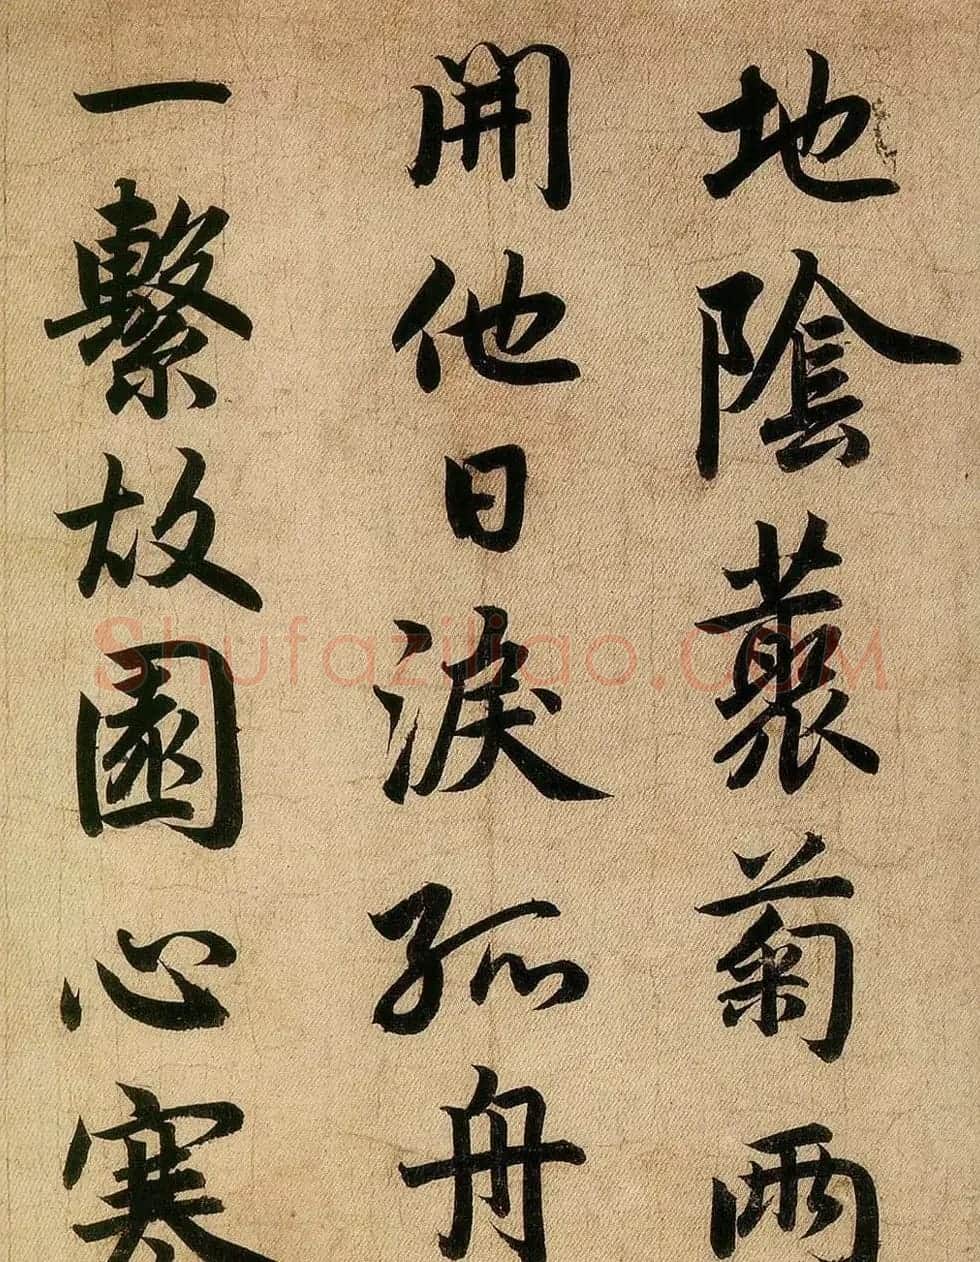 地陰藂菊兩
開他日淚孤舟
一繫故園心寒
Shufaziliao.COM